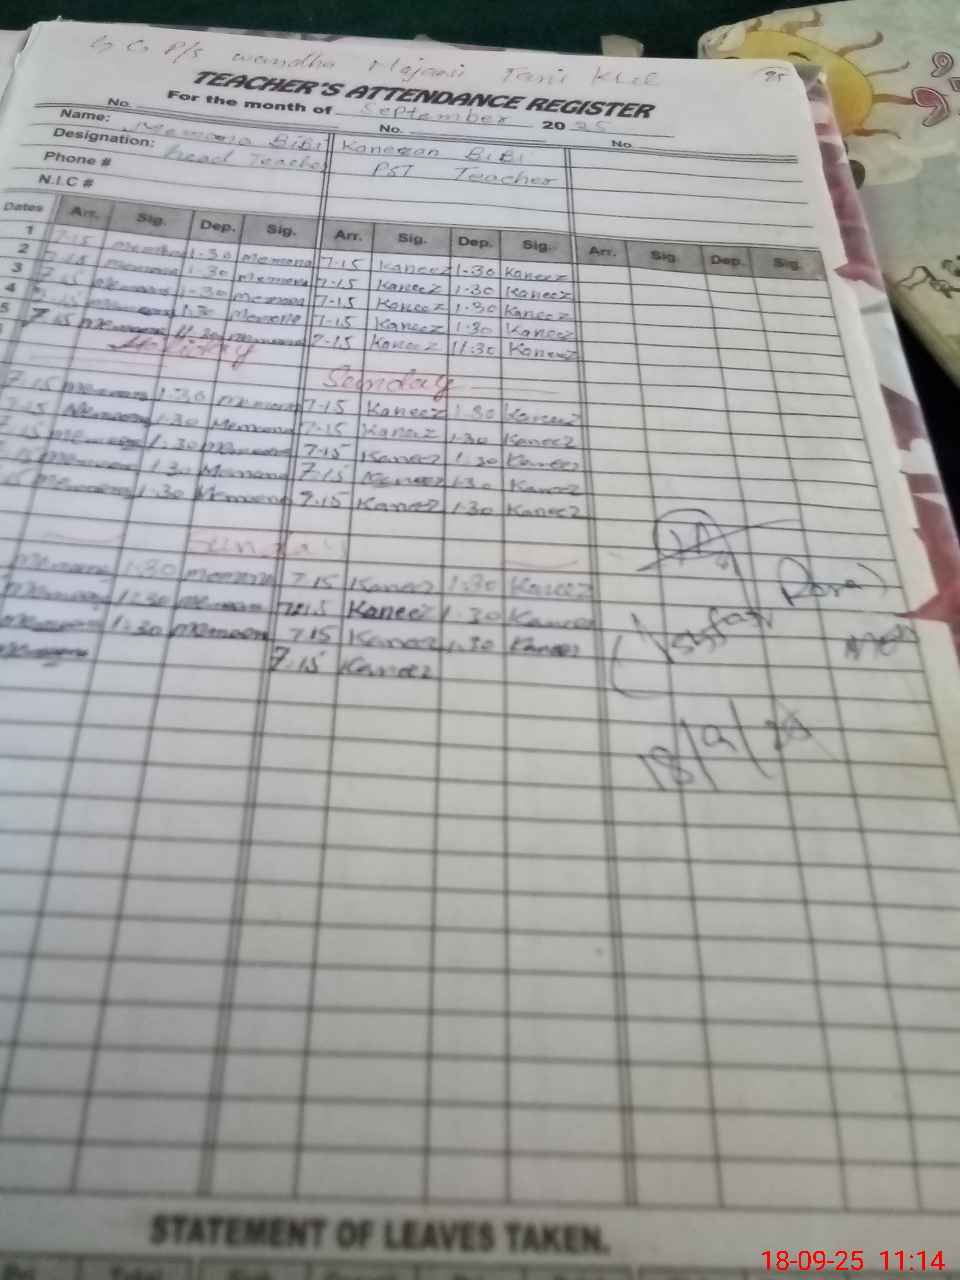 G G P/S wandha Mojani Tani Khel
95
TEACHER'S ATTENDANCE REGISTER
For the month of September 2025
No. No. No.
Name: Memona BiBi Kaneezan BiBi
Designation: head Teacher PST Teacher
Phone #
N.I.C #
Dates Arr. Sig. Dep. Sig. Arr. Sig. Dep. Sig. Arr. Sig. Dep. Sig.
1 7-15 memona 1-30 memona 7-15 Kaneez 1-30 Kaneez
2 7-15 memona 1-30 memona 7-15 Kaneez 1-30 Kaneez
3 7-15 memona 1-30 memona 7-15 Kaneez 1-30 Kaneez
4 7-15 memona 1-30 memona 7-15 Kaneez 1-30 Kaneez
5 7-15 memona 11-30 memona 7-15 Kaneez 11-30 Kaneez
Holiday
Sunday
7-15 memona 1-30 memona 7-15 Kaneez 1-30 Kaneez
7-15 Memona 1-30 Memona 7-15 Kaneez 1-30 Kaneez
7-15 memona 1-30 memona 7-15 Kaneez 1-30 Kaneez
memona 1-30 Memona 7-15 Kaneez 1-30 Kaneez
memona 1-30 Memona 7-15 Kaneez 1-30 Kaneez
Sunday
memona 1-30 memona 7-15 Kaneez 1-30 Kaneez
memona 1-30 memona 7-15 Kaneez 1-30 Kaneez
memona 1-30 memona 7-15 Kaneez 1-30 Kaneez
memona 7-15 Kaneez
18/9/25
STATEMENT OF LEAVES TAKEN.
18-09-25 11:14